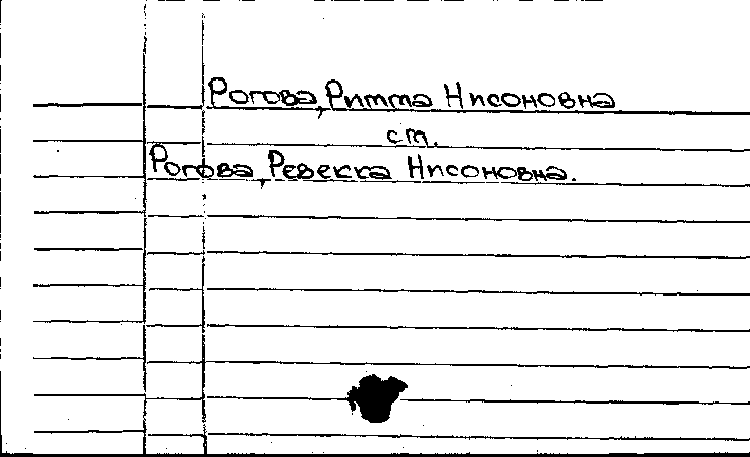 Рогова, Римма Нисоновна
ст.
Рогова, Ревекка Нисоновна.